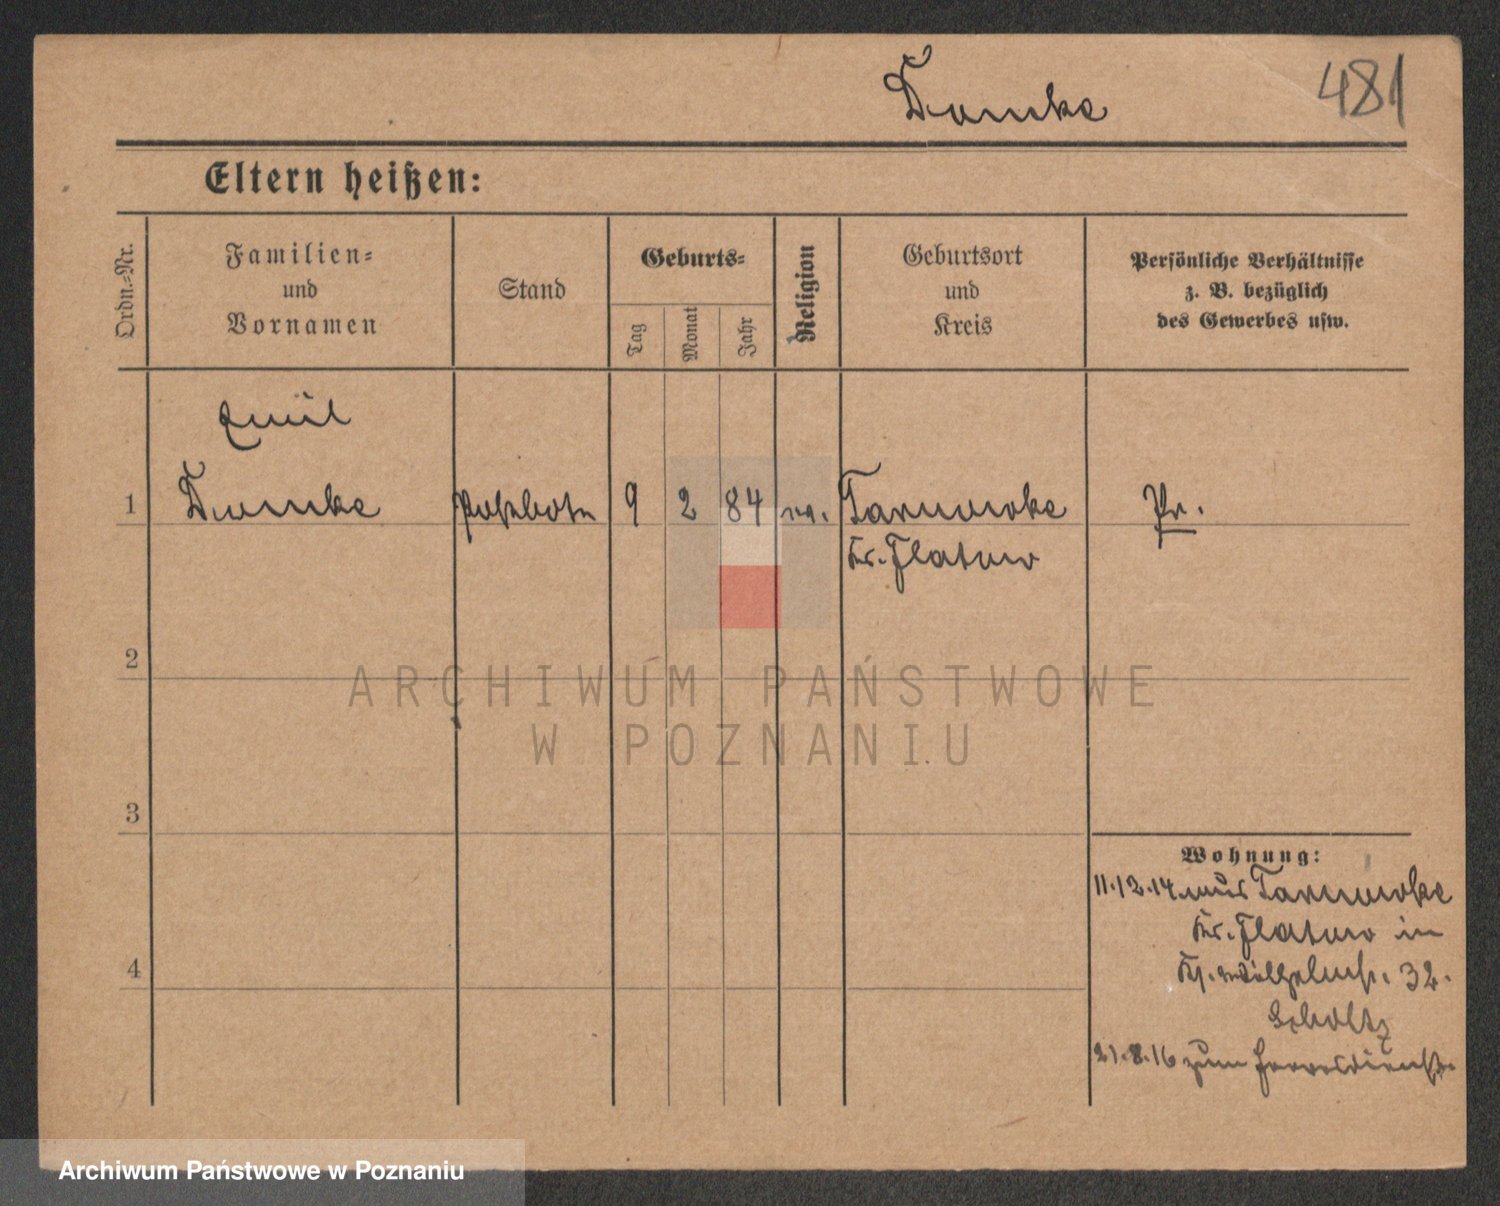 Domke 481
Eltern heißen:
Ordn.-Nr.
Familien-
und
Vornamen
Stand
Geburts-
Tag
Monat
Jahr
Religion
Geburtsort
und
Kreis
Persönliche Verhältnisse
z. B. bezüglich
des Gewerbes usw.
Emil
1 Domke Postbote 9 2 84 ev. Tarnowke Pr.
Kr. Flatow
2
ARCHIWUM PAŃSTWOWE
W POZNANIU
3
Wohnung:
11.12.14 aus Tarnowke
Kr. Flatow in
32.
4
Scholtz
21.8.16 zum Heeresdienst
Archiwum Państwowe w Poznaniu